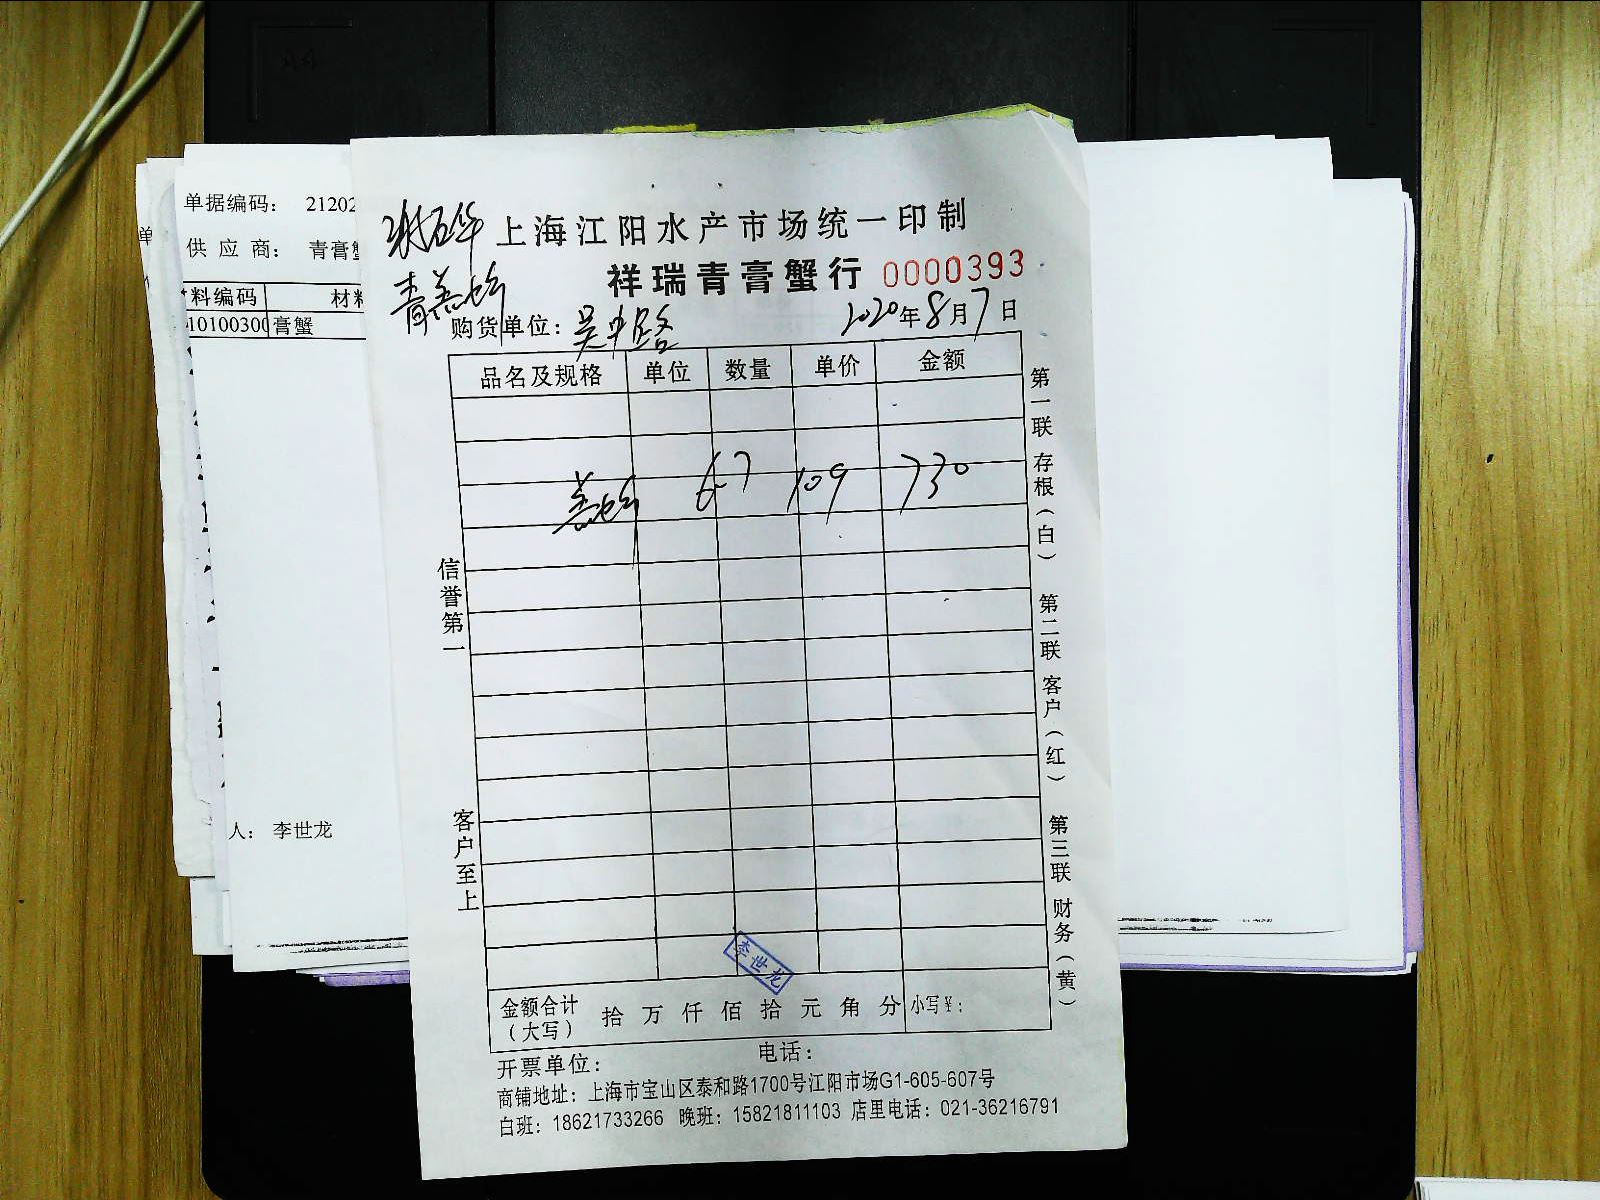 单据编码： 21202
供 应 商： 青膏蟹
料编码 材料
10100300 膏蟹
人： 李世龙
上海江阳水产市场统一印制
祥瑞青膏蟹行 0000393
购货单位：吴中路 2020年8月7日
品名及规格 单位 数量 单价 金额
6.7 109 730
信誉第一
客户至上
第一联 存根（白）
第二联 客户（红）
第三联 财务（黄）
李世龙
金额合计（大写） 拾 万 仟 佰 拾 元 角 分 小写￥：
开票单位： 电话：
商铺地址：上海市宝山区泰和路1700号江阳市场G1-605-607号
白班：18621733266 晚班：15821811103 店里电话：021-36216791